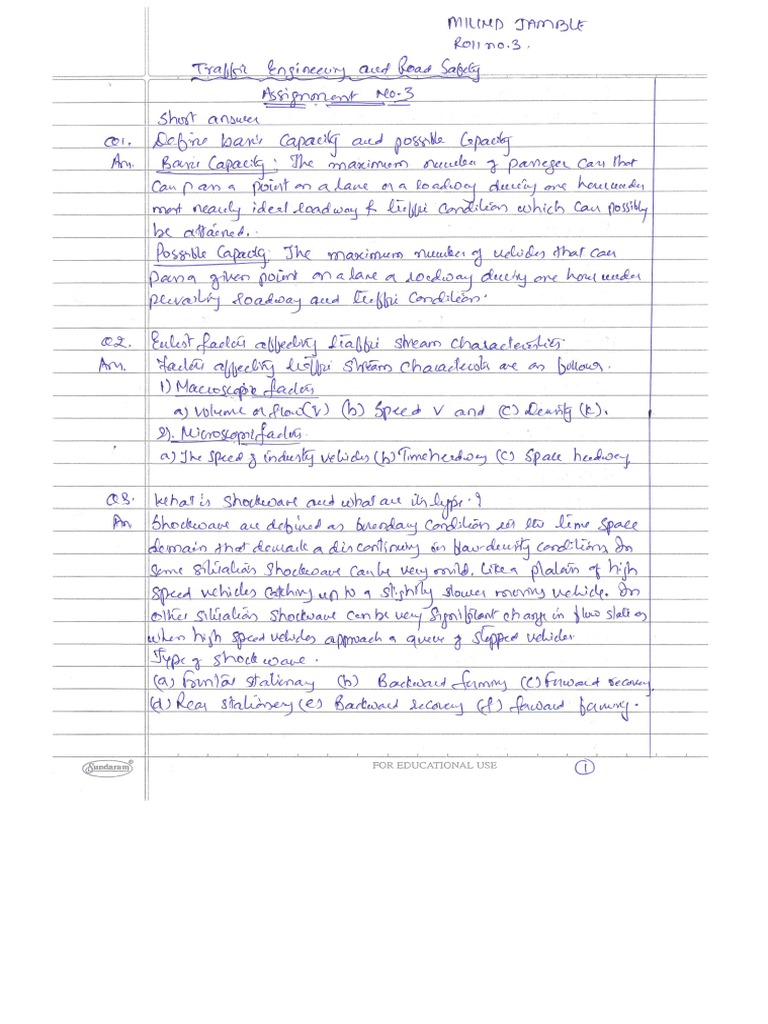 MILIND JAMBLE
Roll no. 3.
Traffic Engineering and Road Safety
Assignment No. 3
Short answer
Q1. Define basic capacity and possible Capacity
An. Basic Capacity: The maximum number of passeger cars that
can pass a point on a lane or a roadway during one hour under
most nearly ideal roadway & traffic condition which can possibly
be attained.
Possible Capacity: The maximum number of vehicles that can
pass a given point on a lane a roadway during one hour under
prevailing roadway and traffic condition.
Q2. Enlist factors affecting traffic stream characteristics
An. Factors affecting traffic stream characteristics are as follows.
1) Macroscopic factors
a) Volume or flow(V) (b) Speed V and (C) Density (K).
2). Microscopic factors.
a) The speed of industry vehicles (b) Time headway (C) Space headway
Q3. What is shockwave and what are its type.?
An Shockwave are defined as boundary condition in the time space
domain that demark a discontinuity in flow-density conditions. In
some situation shockwave can be very mild, like a platoon of high
speed vehicles catching up to a slightly slower moving vehicle. In
other situation shockwave can be very significant change in flow state as
when high speed vehicles approach a queue of stopped vehicles
Type of shock wave.
(a) Frontal stationary (b) Backward forming (C) Forward recovery
(d) Rear stationery (e) Backward recovery (f) forward forming.
Sundaram®
FOR EDUCATIONAL USE
1